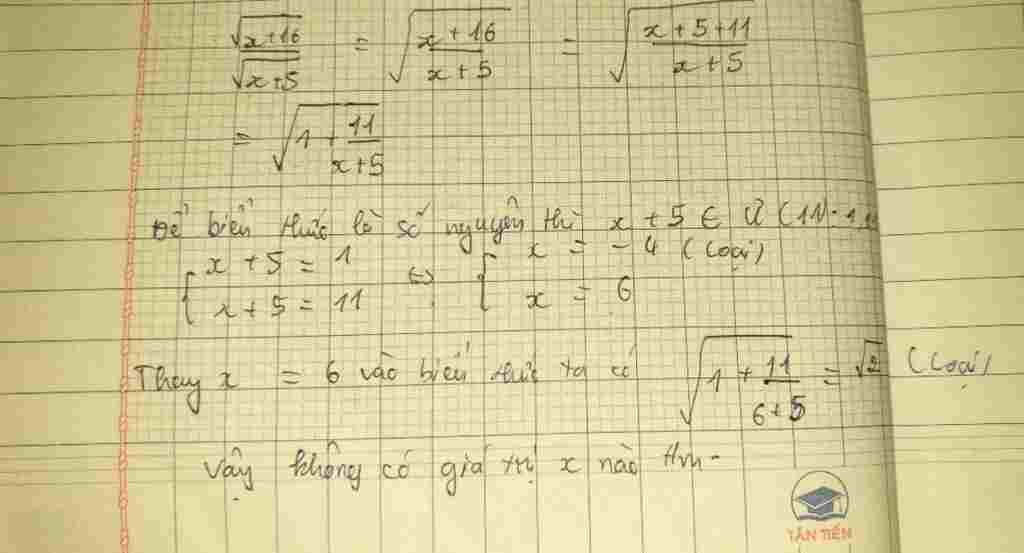 √x+16 / √x+5 = √(x+16 / x+5) = √(x+5+11 / x+5)
= √(1 + 11 / x+5)
Để biểu thức là số nguyên thì x + 5 ∈ Ư (11)
{ x + 5 = 1 ⇔ { x = -4 (loại)
x + 5 = 11 x = 6
Thay x = 6 vào biểu thức ta có √(1 + 11 / 6+5) = √2 (loại)
Vậy không có giá trị x nào tm.
TÂN TIẾN